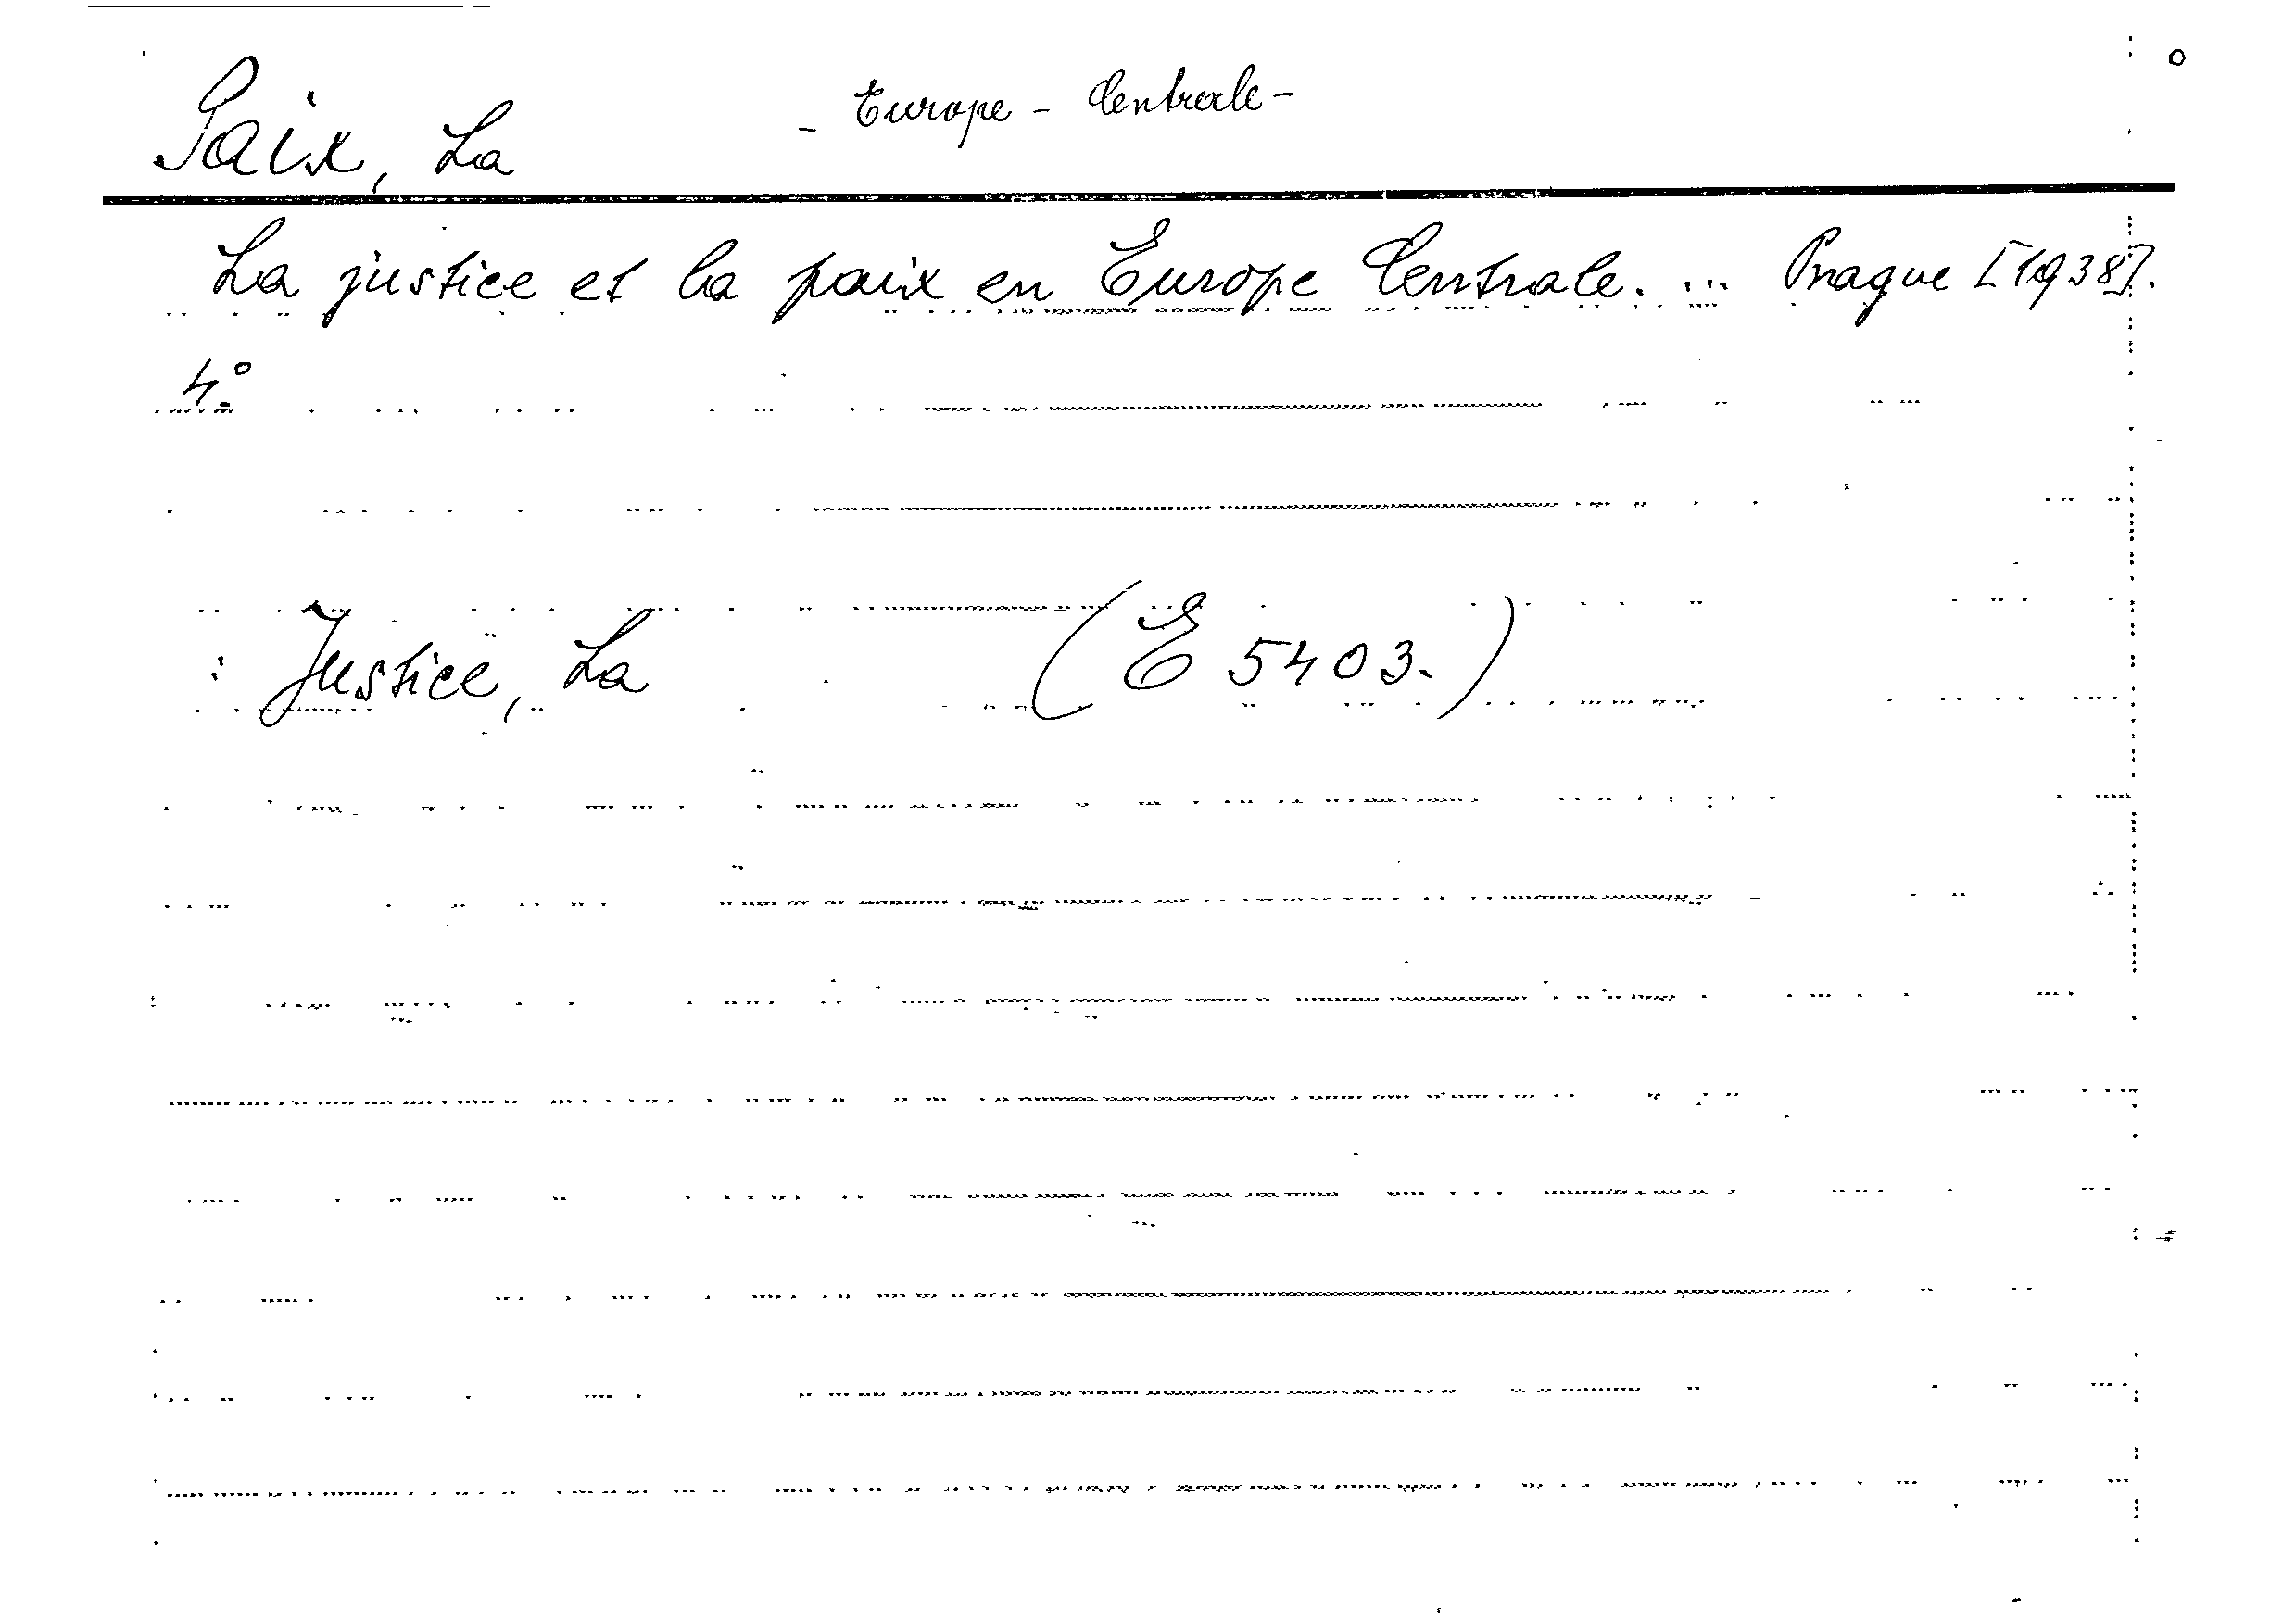 Paix, La - Europe - Centrale -
La justice et la paix en Europe Centrale. ... Prague [1938].
4°.
: Justice, La (E 5403.)